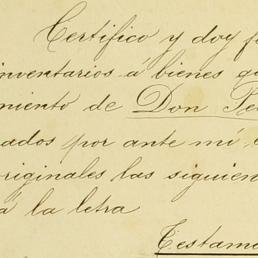 Certifico y doy f
inventarios á bienes q
miento de Don Pe
ados por ante mí,
originales las siguien
á la letra
Testam